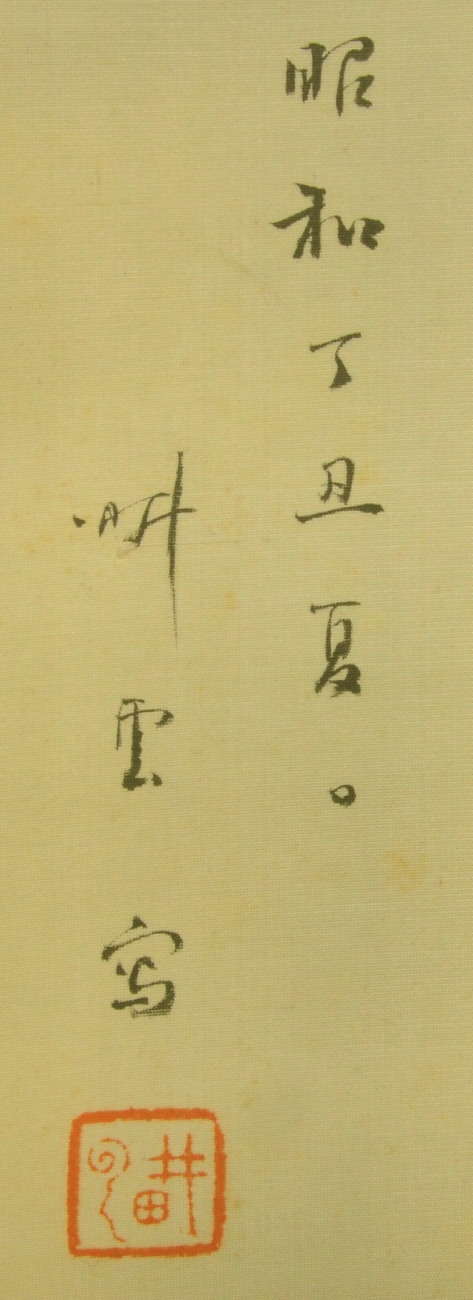 昭和丁丑夏。
畊雲写
畊云